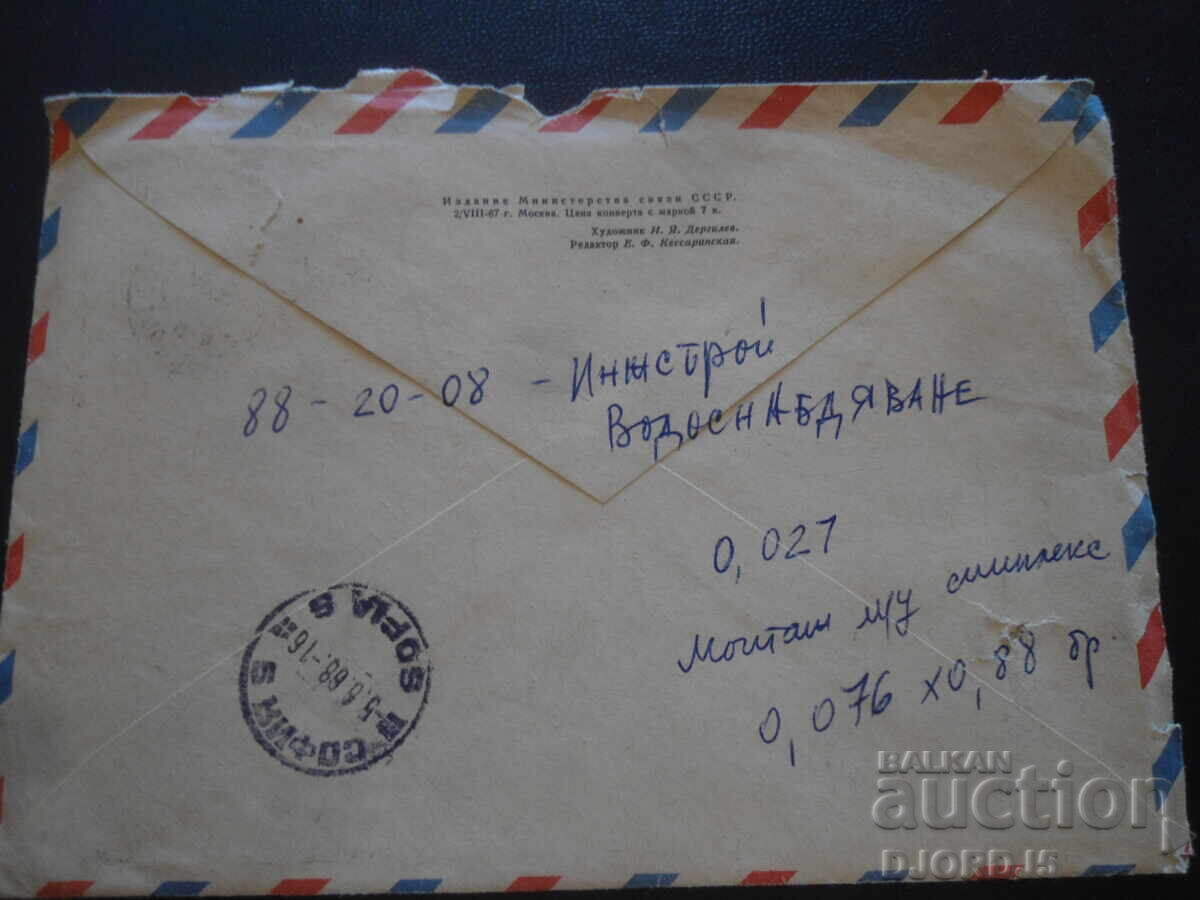 Издание Министерства связи СССР.
2/VIII-67 г. Москва. Цена конверта с маркой 7 к.
Художник И. Я. Дергилев.
Редактор Е. Ф. Кессаринская.
88-20-08 - Инжстрой
Водоснабдяване
0,027
Монтаж м/у
0,076 х0,88 бр.
СОФИЯ 5
5.6.68.-16
SOFIA 5
BALKAN
auction
DJORDJ5